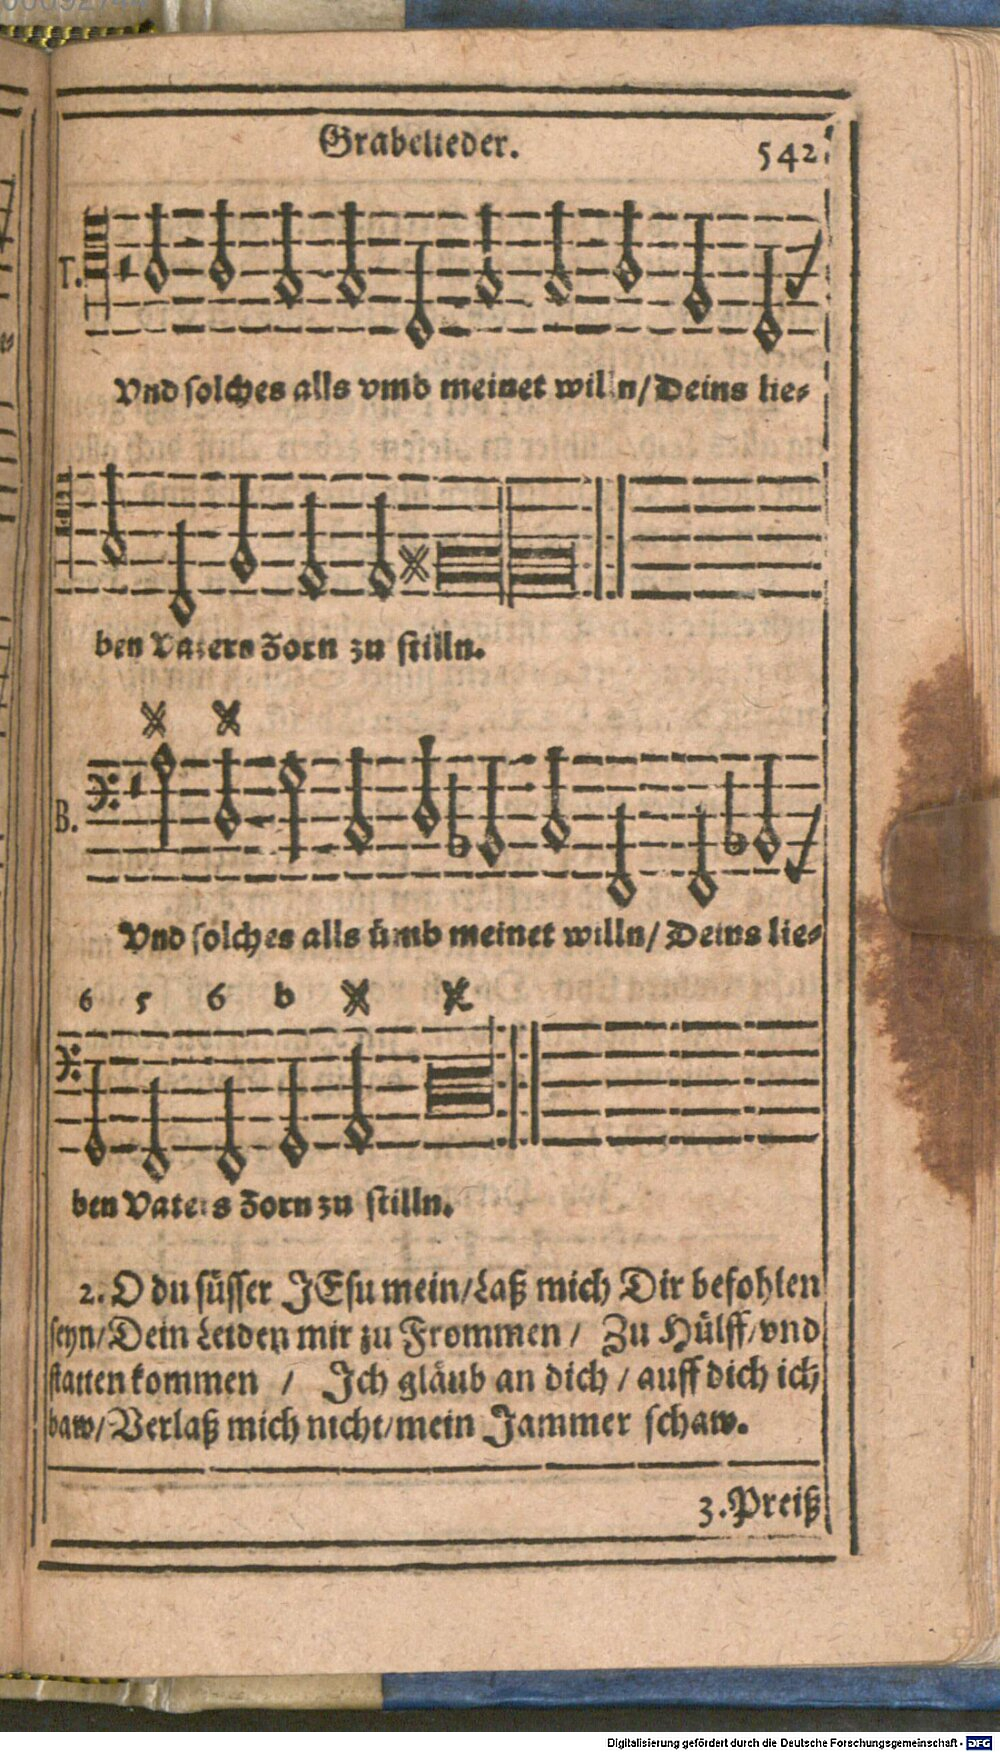 Grabelieder.
542
T.
Vnd solches alls vmb meinet willn/Deins lie-
ben Vaters Zorn zu stilln.
B.
Vnd solches alls ümb meinet willn/Deins lie-
6 5 6 b
ben Vaters Zorn zu stilln.
2. O du süsser JEsu mein/Laß mich Dir befohlen
seyn/Dein Leiden mir zu Frommen / Zu Hülff/vnd
statten kommen / Ich gläub an dich / auff dich ich
baw/Verlaß mich nicht/mein Jammer schaw.
3. Preiß
Digitalisierung gefördert durch die Deutsche Forschungsgemeinschaft - DFG